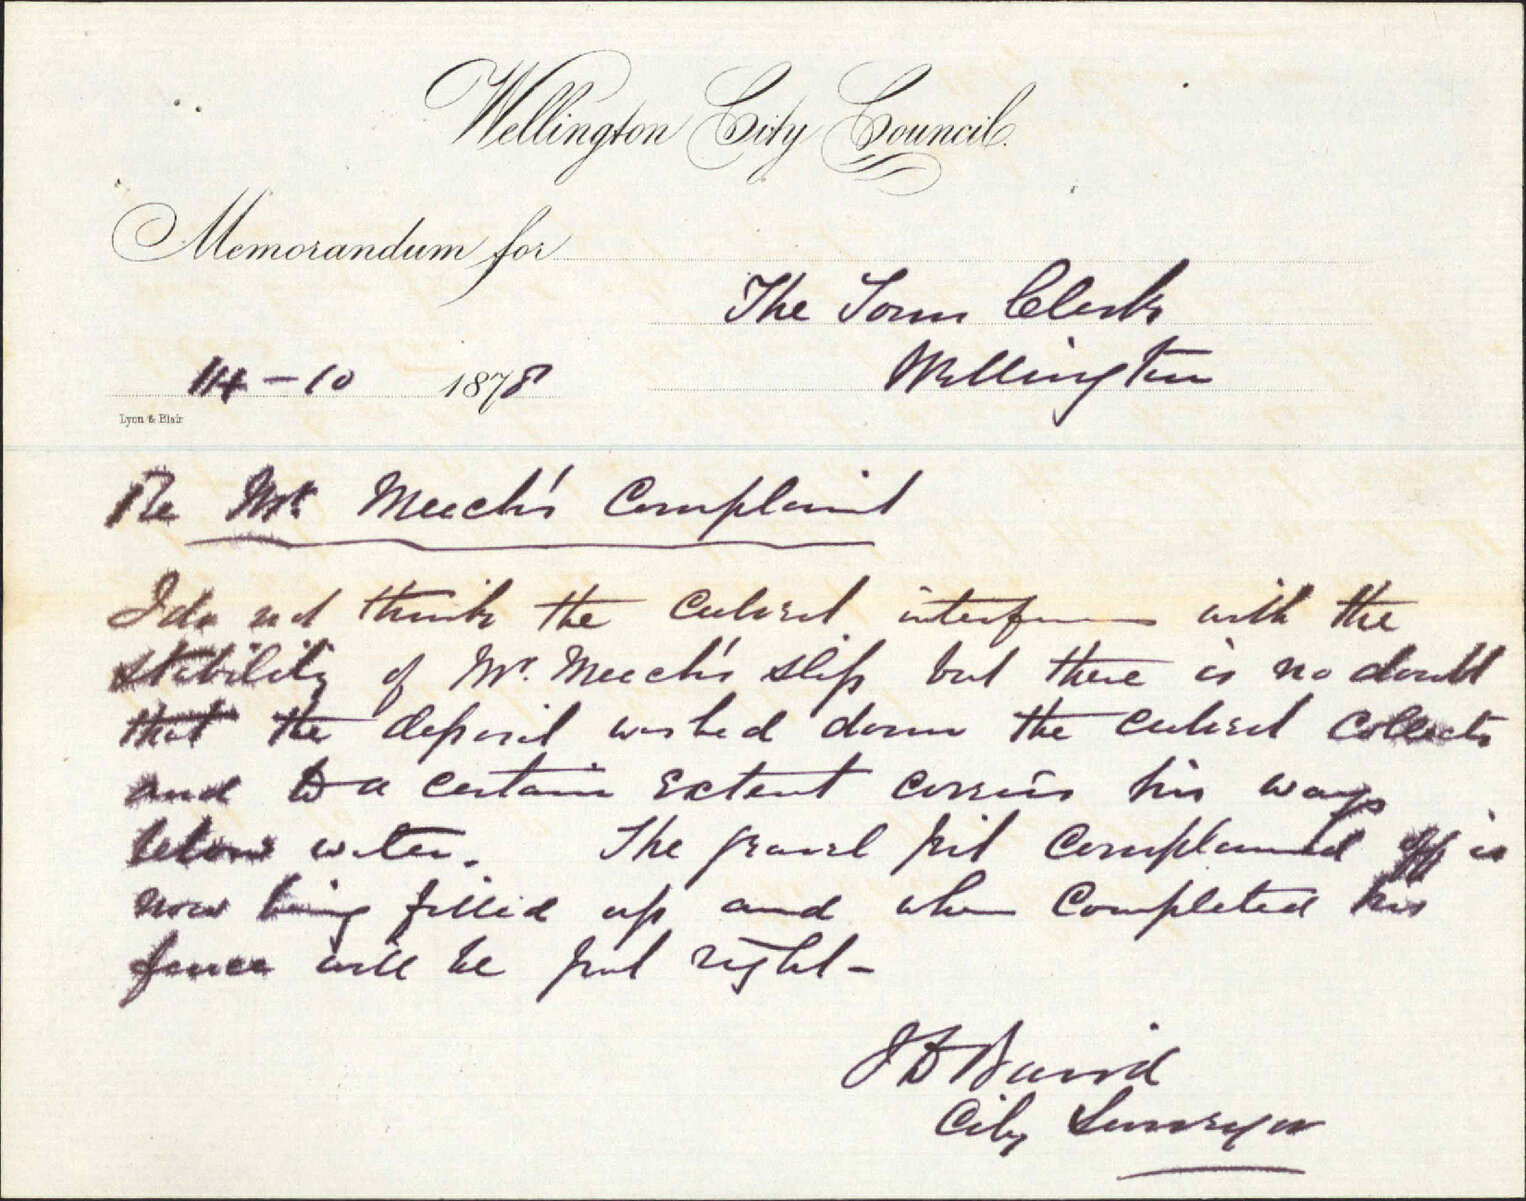 Wellington City Council.
Memorandum for
The Town Clerk
Wellington
14-10 1878
Lyon & Blair
Re Mr. Meech's Complaint
I do not think the Culvert interferes with the
stability of Mr. Meech's slip but there is no doubt
that the deposit washed down the culvert collects
and to a certain extent covers his ways
below water. The gravel pit complained off is
now being filled up and when completed his
fence will be put right -
J D Baird
City Surveyor